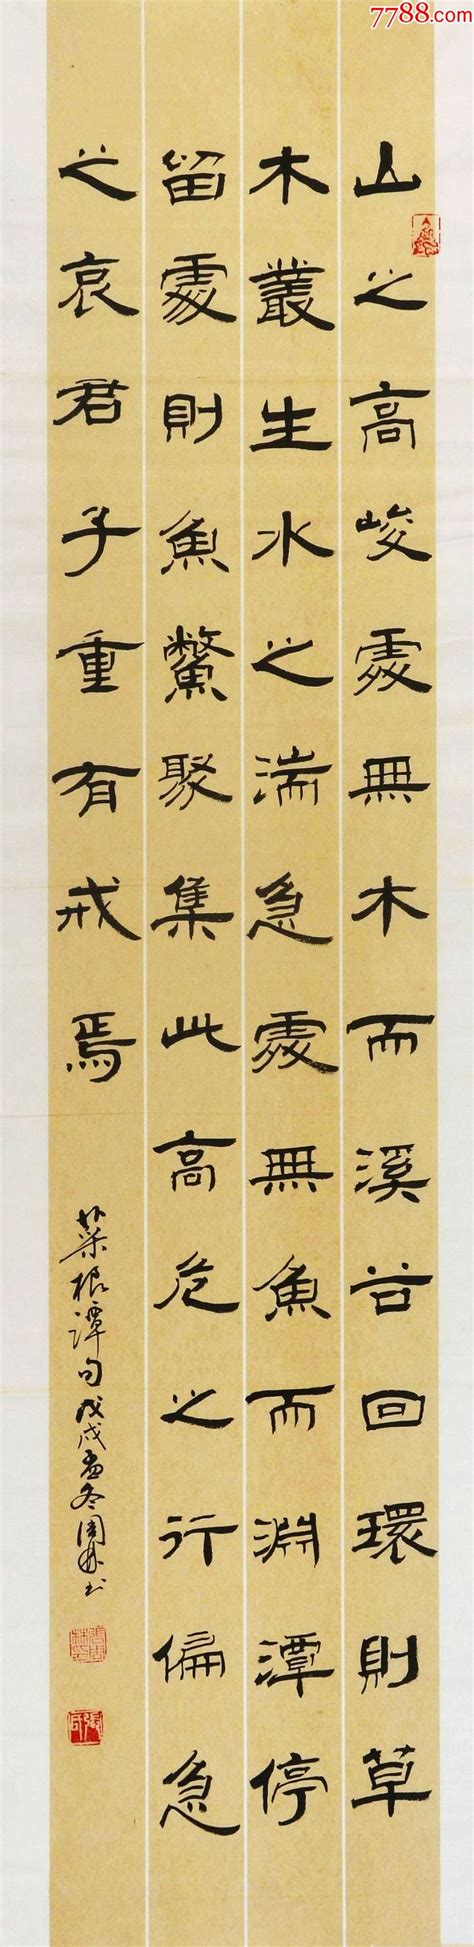 7788.com
山之高峻處無木而溪谷回環則草
木叢生水之湍急處無魚而淵潭停
留處則魚鱉聚集此高危之行偏急
之哀君子重有戒焉
菜根譚句戊戌孟冬周林书